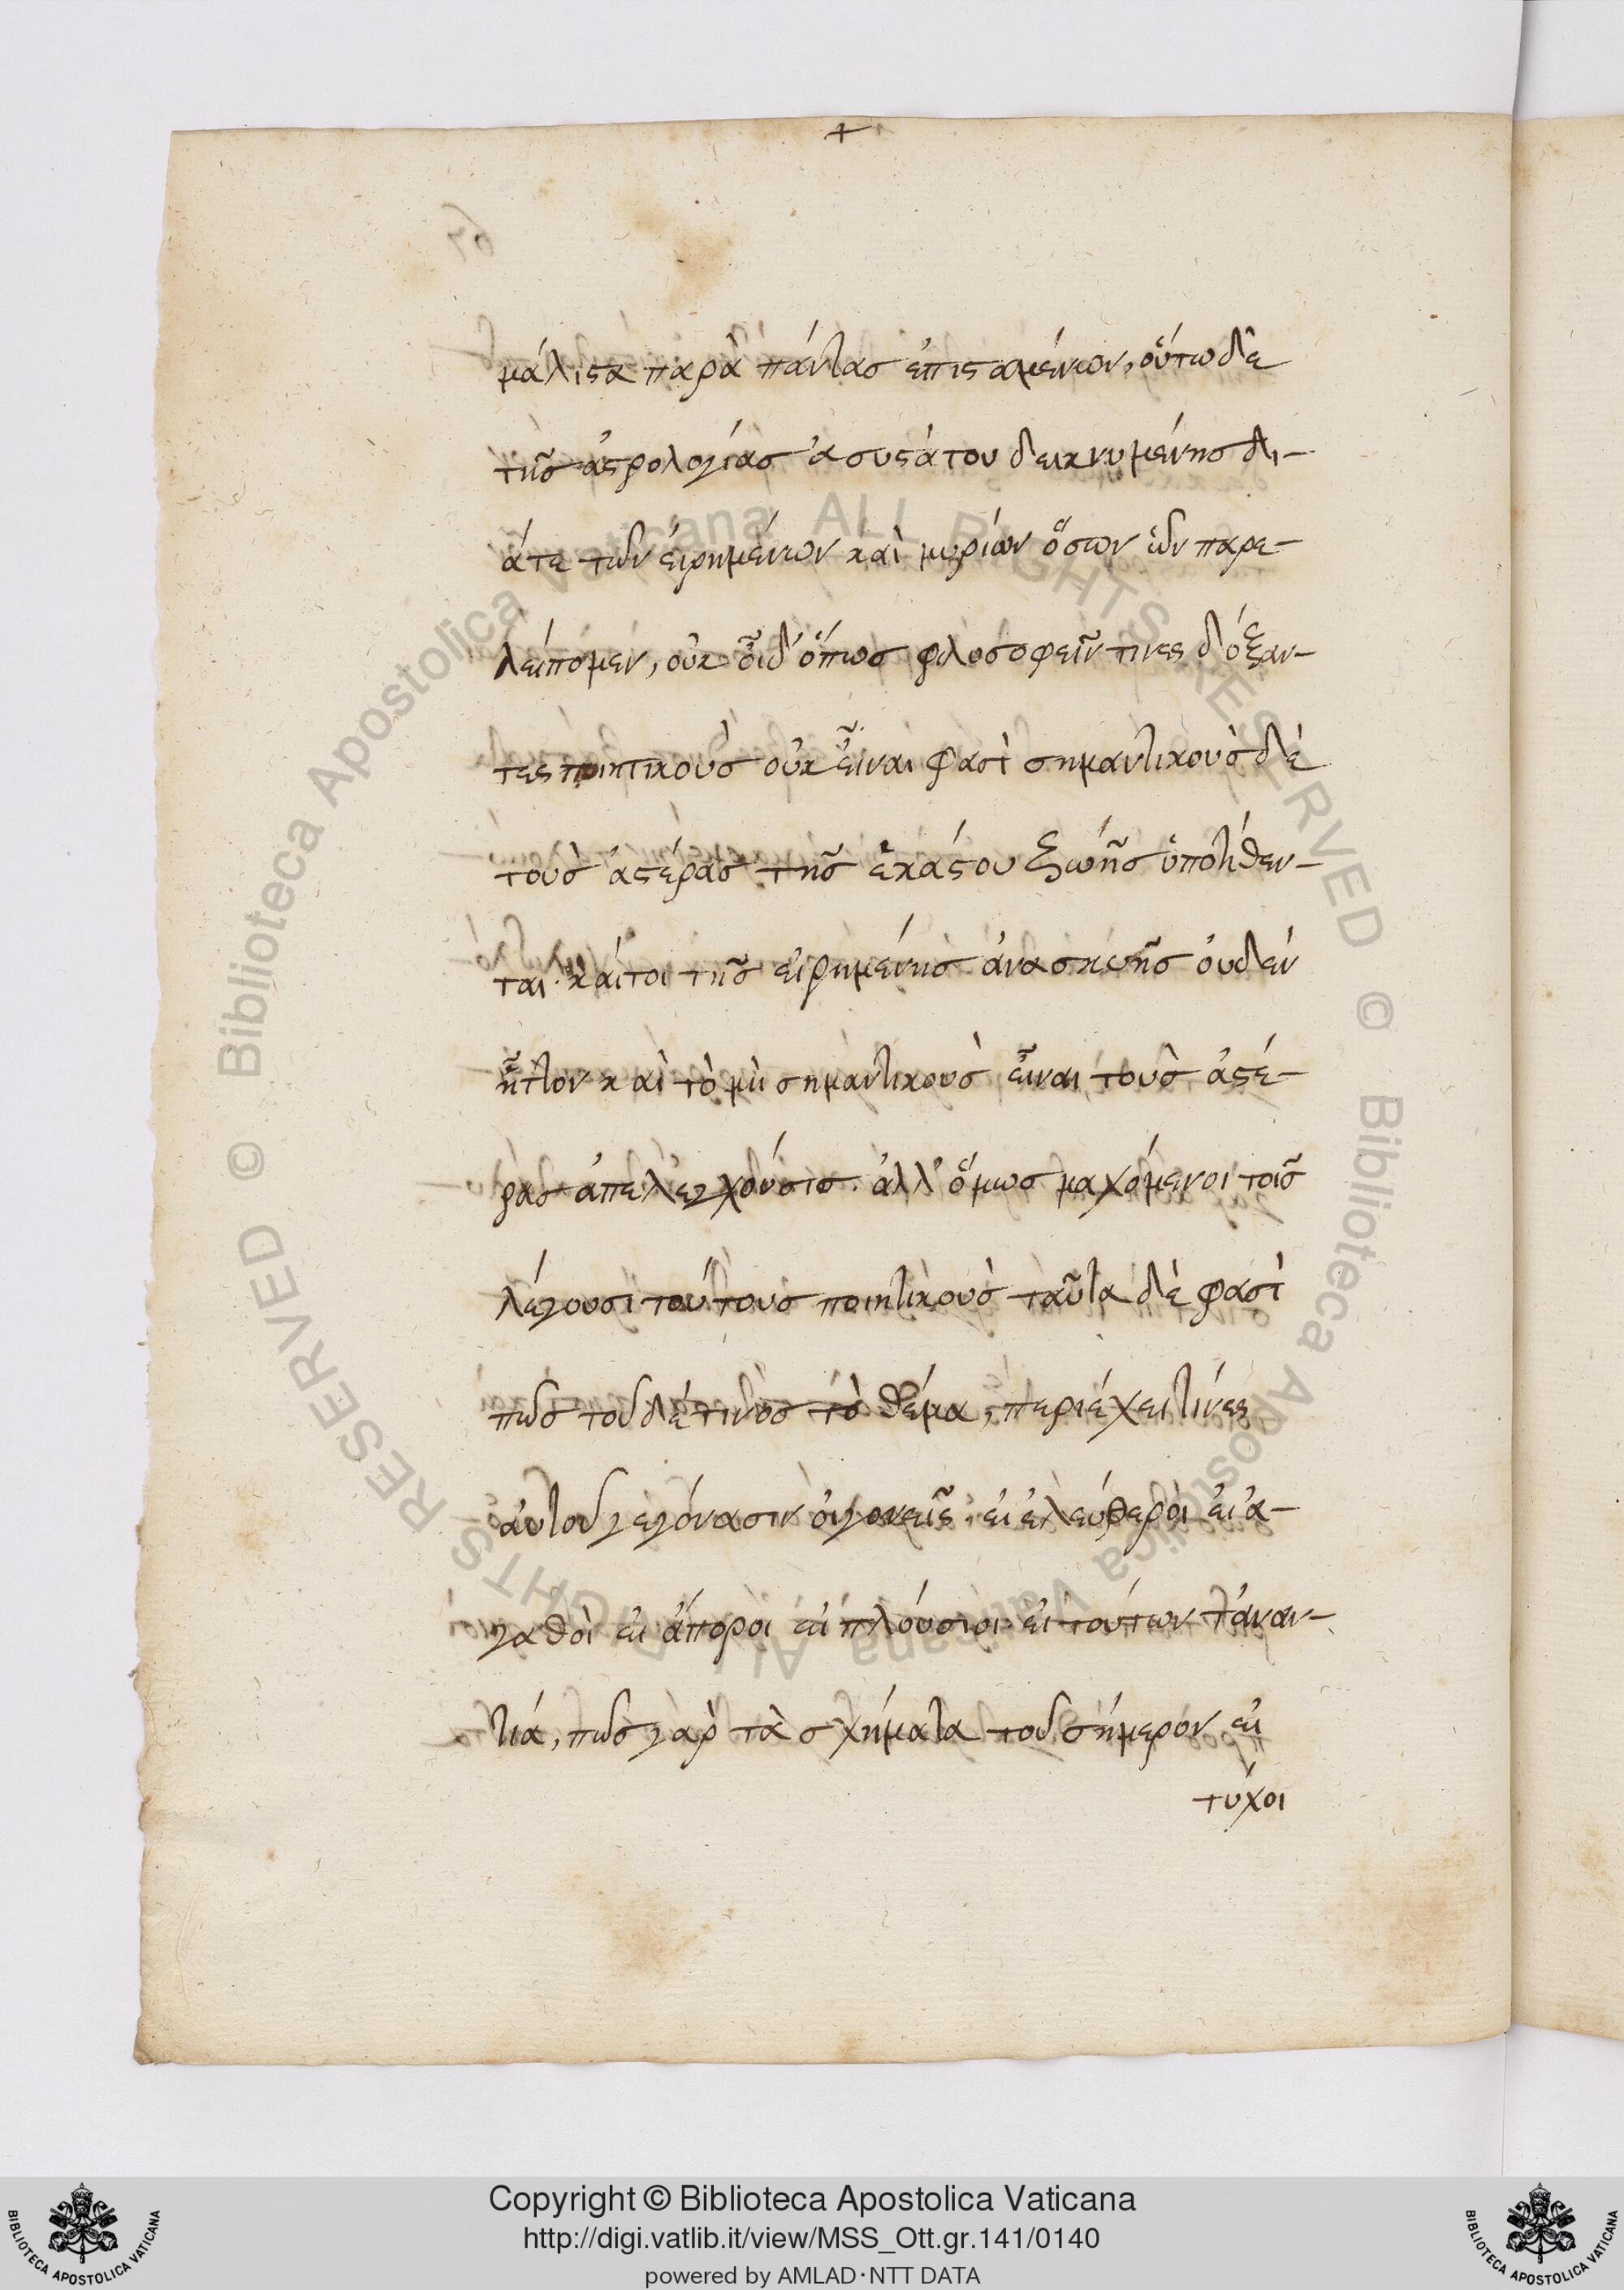 +
μάλιστα παρὰ πάντας ἐπισταμένων, οὕτω δὲ
τῆς ἀστρολογίας ἀσυστάτου δεικνυμένης δι-
άτε τῶν εἰρημένων καὶ μυρίων ὅσων ὧν παρε-
λείπομεν, οὐκ οἶδ' ὅπως φιλοσοφεῖν τινες δόξαν-
τες ποιητικοὺς οὐκ εἶναι φασὶ σημαντικοὺς δὲ
τοὺς ἀστέρας τῆς ἑκάστου ζωῆς ὑποτίθεν-
ται· καίτοι τῆς εἰρημένης ἀνασκευῆς οὐδὲν
ἧττον καὶ τὸ μὴ σημαντικοὺς εἶναι τοὺς ἀστέ-
ρας ἀπελεγχούσις. ἀλλ' ὅμως μαχόμενοι τοῖς
λέγουσι τούτους ποιητικοὺς ταῦτα δὲ φασὶ
πῶς τοῦ δέ τινος τὸ θέμα, περιέχει τίνες
αὐτοῦ γεγόνασιν οἱ γονεῖς· εἰ ἐλεύθεροι εἰ ἀ-
γαθοὶ εἰ ἄποροι εἰ πλούσιοι εἰ τούτων τἀναν-
τιά, πῶς γὰρ τὰ σχήματα τοῦ σήμερον εἰ
τύχοι
Copyright © Biblioteca Apostolica Vaticana
http://digi.vatlib.it/view/MSS_Ott.gr.141/0140
powered by AMLAD·NTT DATA